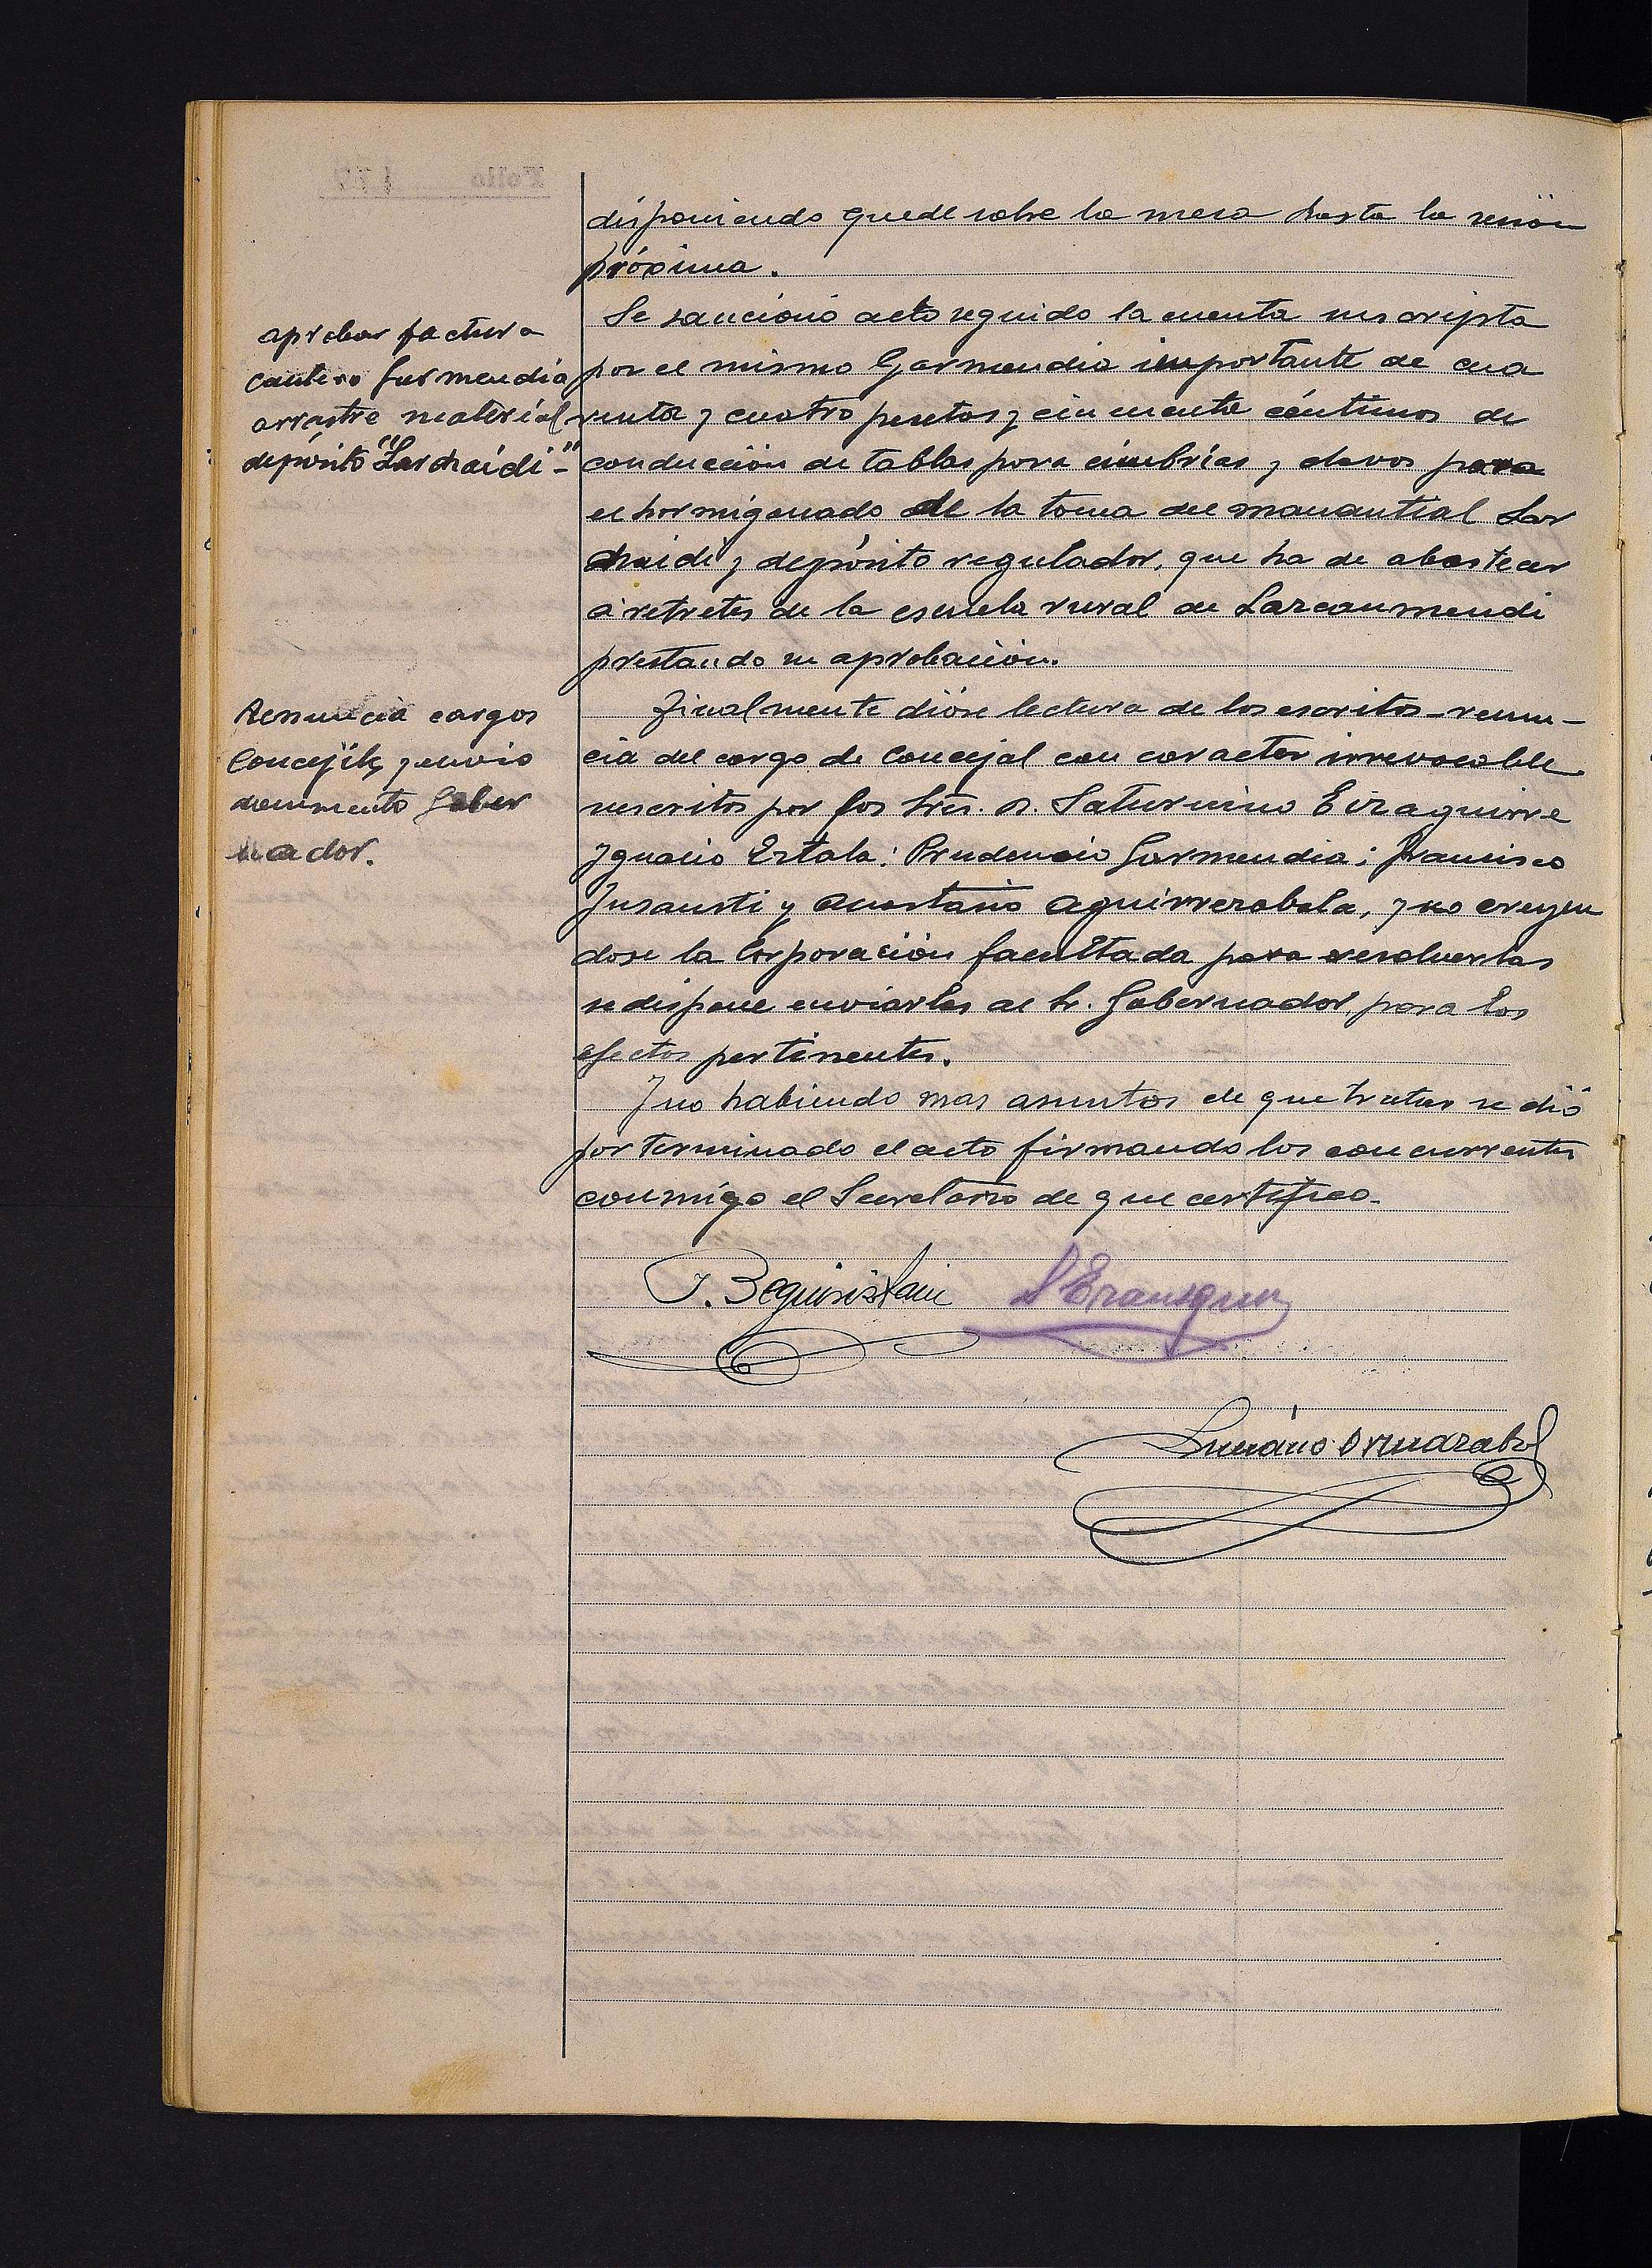 disponiendo quede sobre la mesa hasta la sesión
próxima.
aprobar factura
cantero Garmendia
arrastre material
depósito "Larchaidi"-
Se sancionó acto seguido la cuenta suscripta
por el mismo Garmendia importante de cua
renta y cuatro pesetas y cincuenta céntimos de
conducción de tablas para cimbrias y clavos para
el hormigonado de la toma del manantial Lar
chaidi y depósito regulador, que ha de abastecer
á retretes de la escuela rural de Lazcanmendi
prestando su aprobación.
Renuncia cargos
Concejiles y envio
documento Gober
nador.
Finalmente dióse lectura de los escritos-renun-
cia del cargo de Concejal con caracter irrevocable
suscritos por los Sres. D. Saturnino Eizaguirre
Ignacio Estala: Prudencio Garmendia: Francisco
Insausti y Anastasio Aguirrezabala, y no creyen
dose la Corporación facultada para resolverlas
se dispone enviarlas al Sr. Gobernador para los
efectos pertinentes.
Y no habiendo mas asuntos de que tratar se dió
por terminado el acto firmando los concurrentes
conmigo el Secretario de que certifico.
J. Beguiristain
Folio